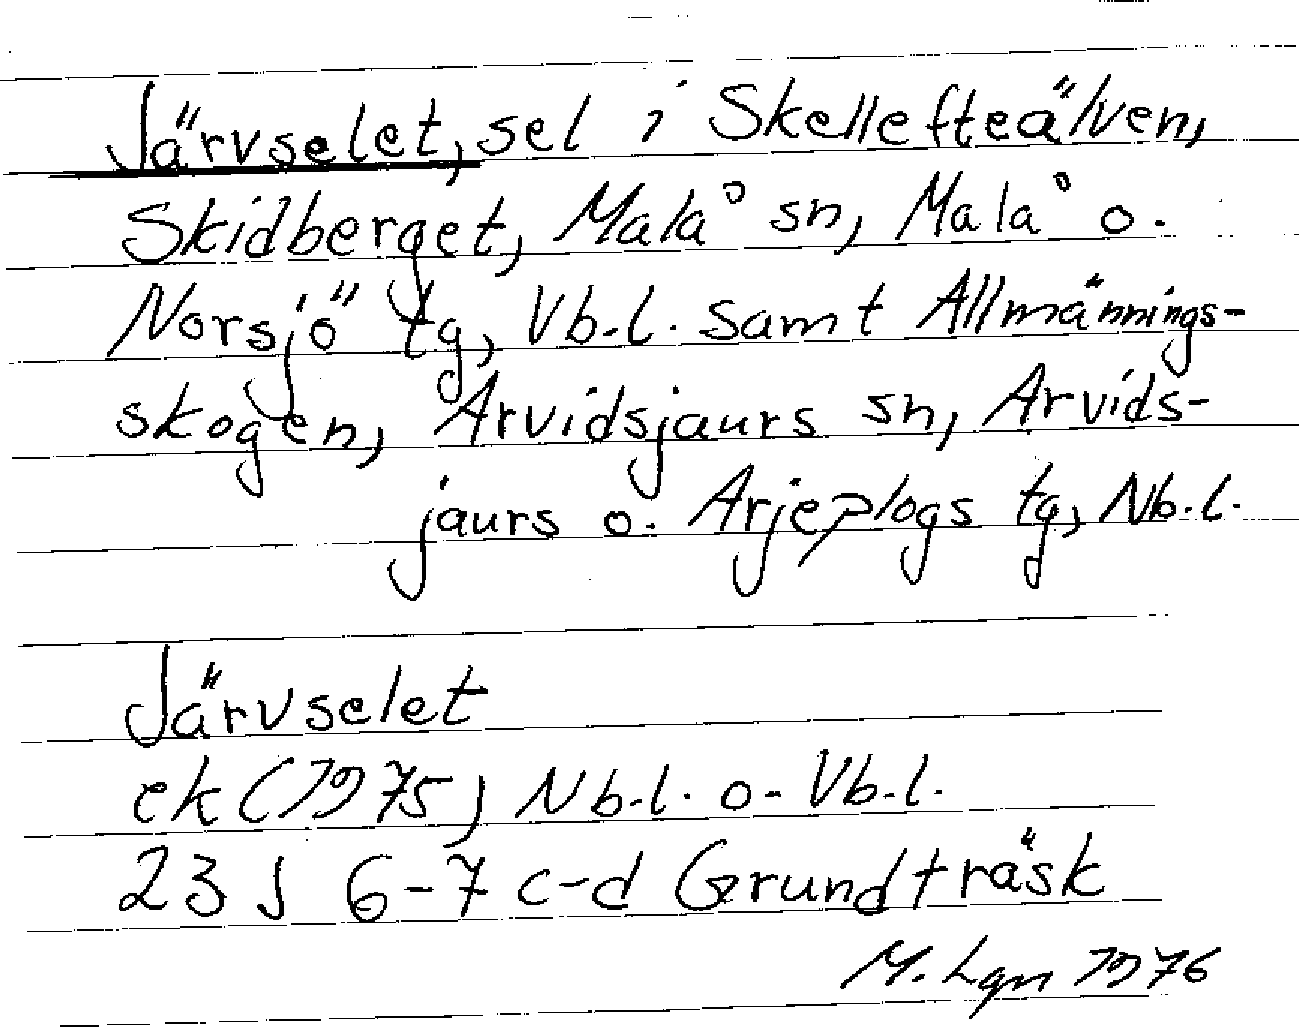 Järvselet, sel i Skellefteälven,
Skidberget, Malå sn, Malå o.
Norsjö tg, Vb.l. samt Allmännings-
skogen, Arvidsjaurs sn, Arvids-
jaurs o. Arjeplogs tg, Nb.l.
Järvselet
ek (1975) Nb.l. o. Vb.l.
23 J 6-7 c-d Grundträsk
M. Lgn 1976